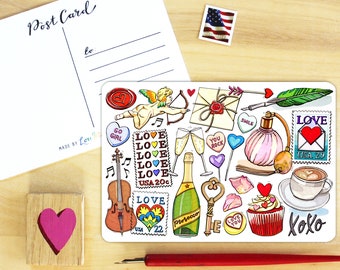 Post Card
to
MADE BY
GO GIRL
LOVE
LOVE
LOVE
LOVE
LOVE
USA 20c
YOU ROCK
SMILE
LOVE
USA 29
LOVE
USA 22
Prosecco
XOXO